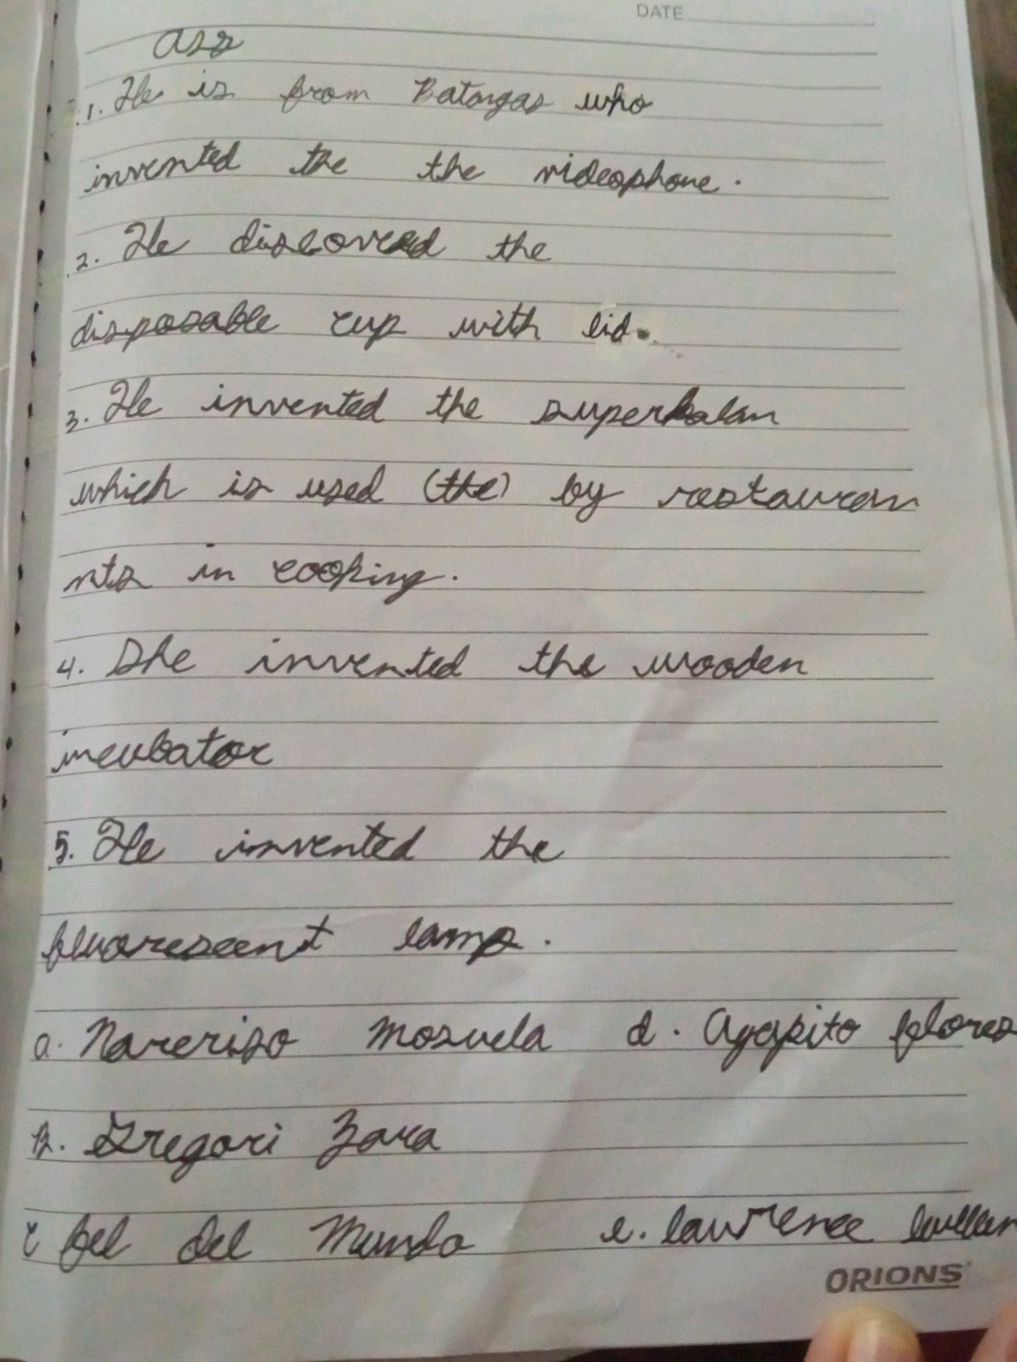 DATE
Ass
1. He is from Batangas who
invented the the videophone.
2. He discovered the
disposable cup with lid.
3. He invented the superkalan
which is used (the) by restauran
nts in cooking.
4. She invented the wooden
incubator
5. He invented the
fluorescent lamp.
a. Narcriso Mosuela d. Agapito flores
B. Gregori Zara
c fel del Mundo e. lawrence
ORIONS